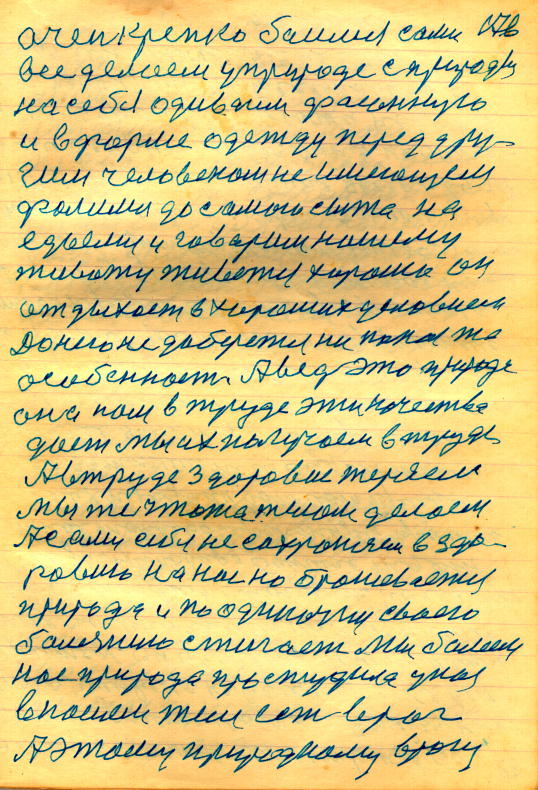 очень крепко боимся сами А в
все делаем у природе с природы
на себя одиваим фасонную
и в форме одежду перед дру-
гим человеком не имеющем
фолими до самого сыта на
едаеми и говарим нашему
животу живется хорошо он
отдыхает в хороших условиях
до него не доберется ни какая та
особенност. А вед это природе
она нам в труде эти качества
дает мы их получаем в труде
А в труде здоровие теряем
мы же что та такои делаем
А сами себя не сохраняем в здо-
ровию на нас на брасевается
природа и по одиночки своего
болезнию стигает мы болеем
нас природа простудила у нас
в нашем теле ест враг
А этому природному врагу